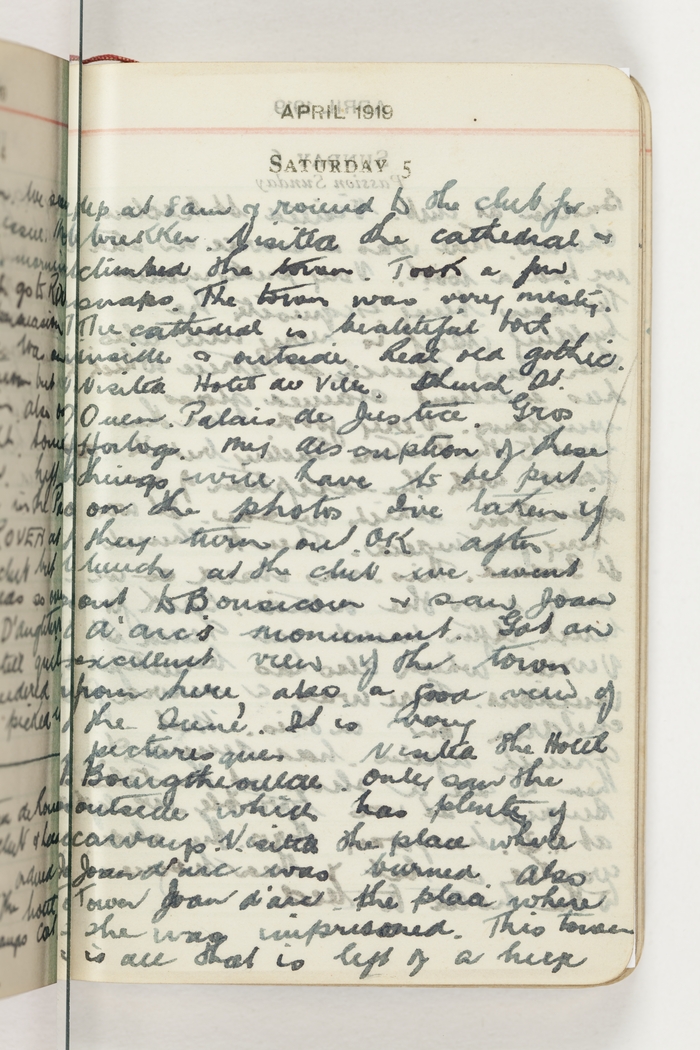 APRIL 1919
SATURDAY 5
Up at 8 am & round to the club for
brekker. Visited the cathedral &
climbed the tower. Took a few
snaps. The town was very misty.
The cathedral is beautiful both
inside & outside. Real old gothic.
Visited Hotel de Ville. Church St.
Ouen. Palais de Justice. Gros
Horloge. My description of these
things will have to be put
on the photos I've taken if
they turn out OK after
lunch at the club we went
out to Bonsecour & saw Joan
d'arc's monument. Got an
excellent view of the town
from here also a good view of
the Seine. It is very
picturesque. Visited the Hotel
Bourgtheroulde. Only saw the
outside which has plenty of
carvings. Visited the place where
Joan d'arc was burned also
Tower Joan d'arc the place where
she was imprisoned. This tower
is all that is left of a huge